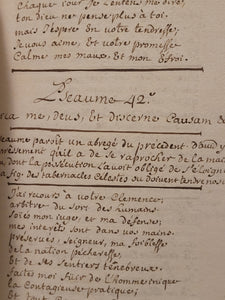 Chaque jour je l'entens me dire,
ton dieu ne pense plus à toi.
mais J'espère en votre tendresse;
Je vous aime, Et votre promesse
Calme mes maux, Et mon Efroi.
Pseaume 42e.
me, deus, Et discerne Causam
paroît un abregé du precedent. David y
qu'il a de se raprocher de la
dont la persécution L'avoit obligé de
fig. des tabernacles Celestes où doivent tendre nos
J'ai recours à votre Clemence;
arbitre du sort des humains
Soiés mon juge, et ma defense;
mes interêts sont dans vos mains.
préservés, Seigneur, ma foiblesse
de la nation pécheresse,
Et de ses Sentiers ténébreux.
faites moi fuir de l'homme inique
la Contagieuse pratique;